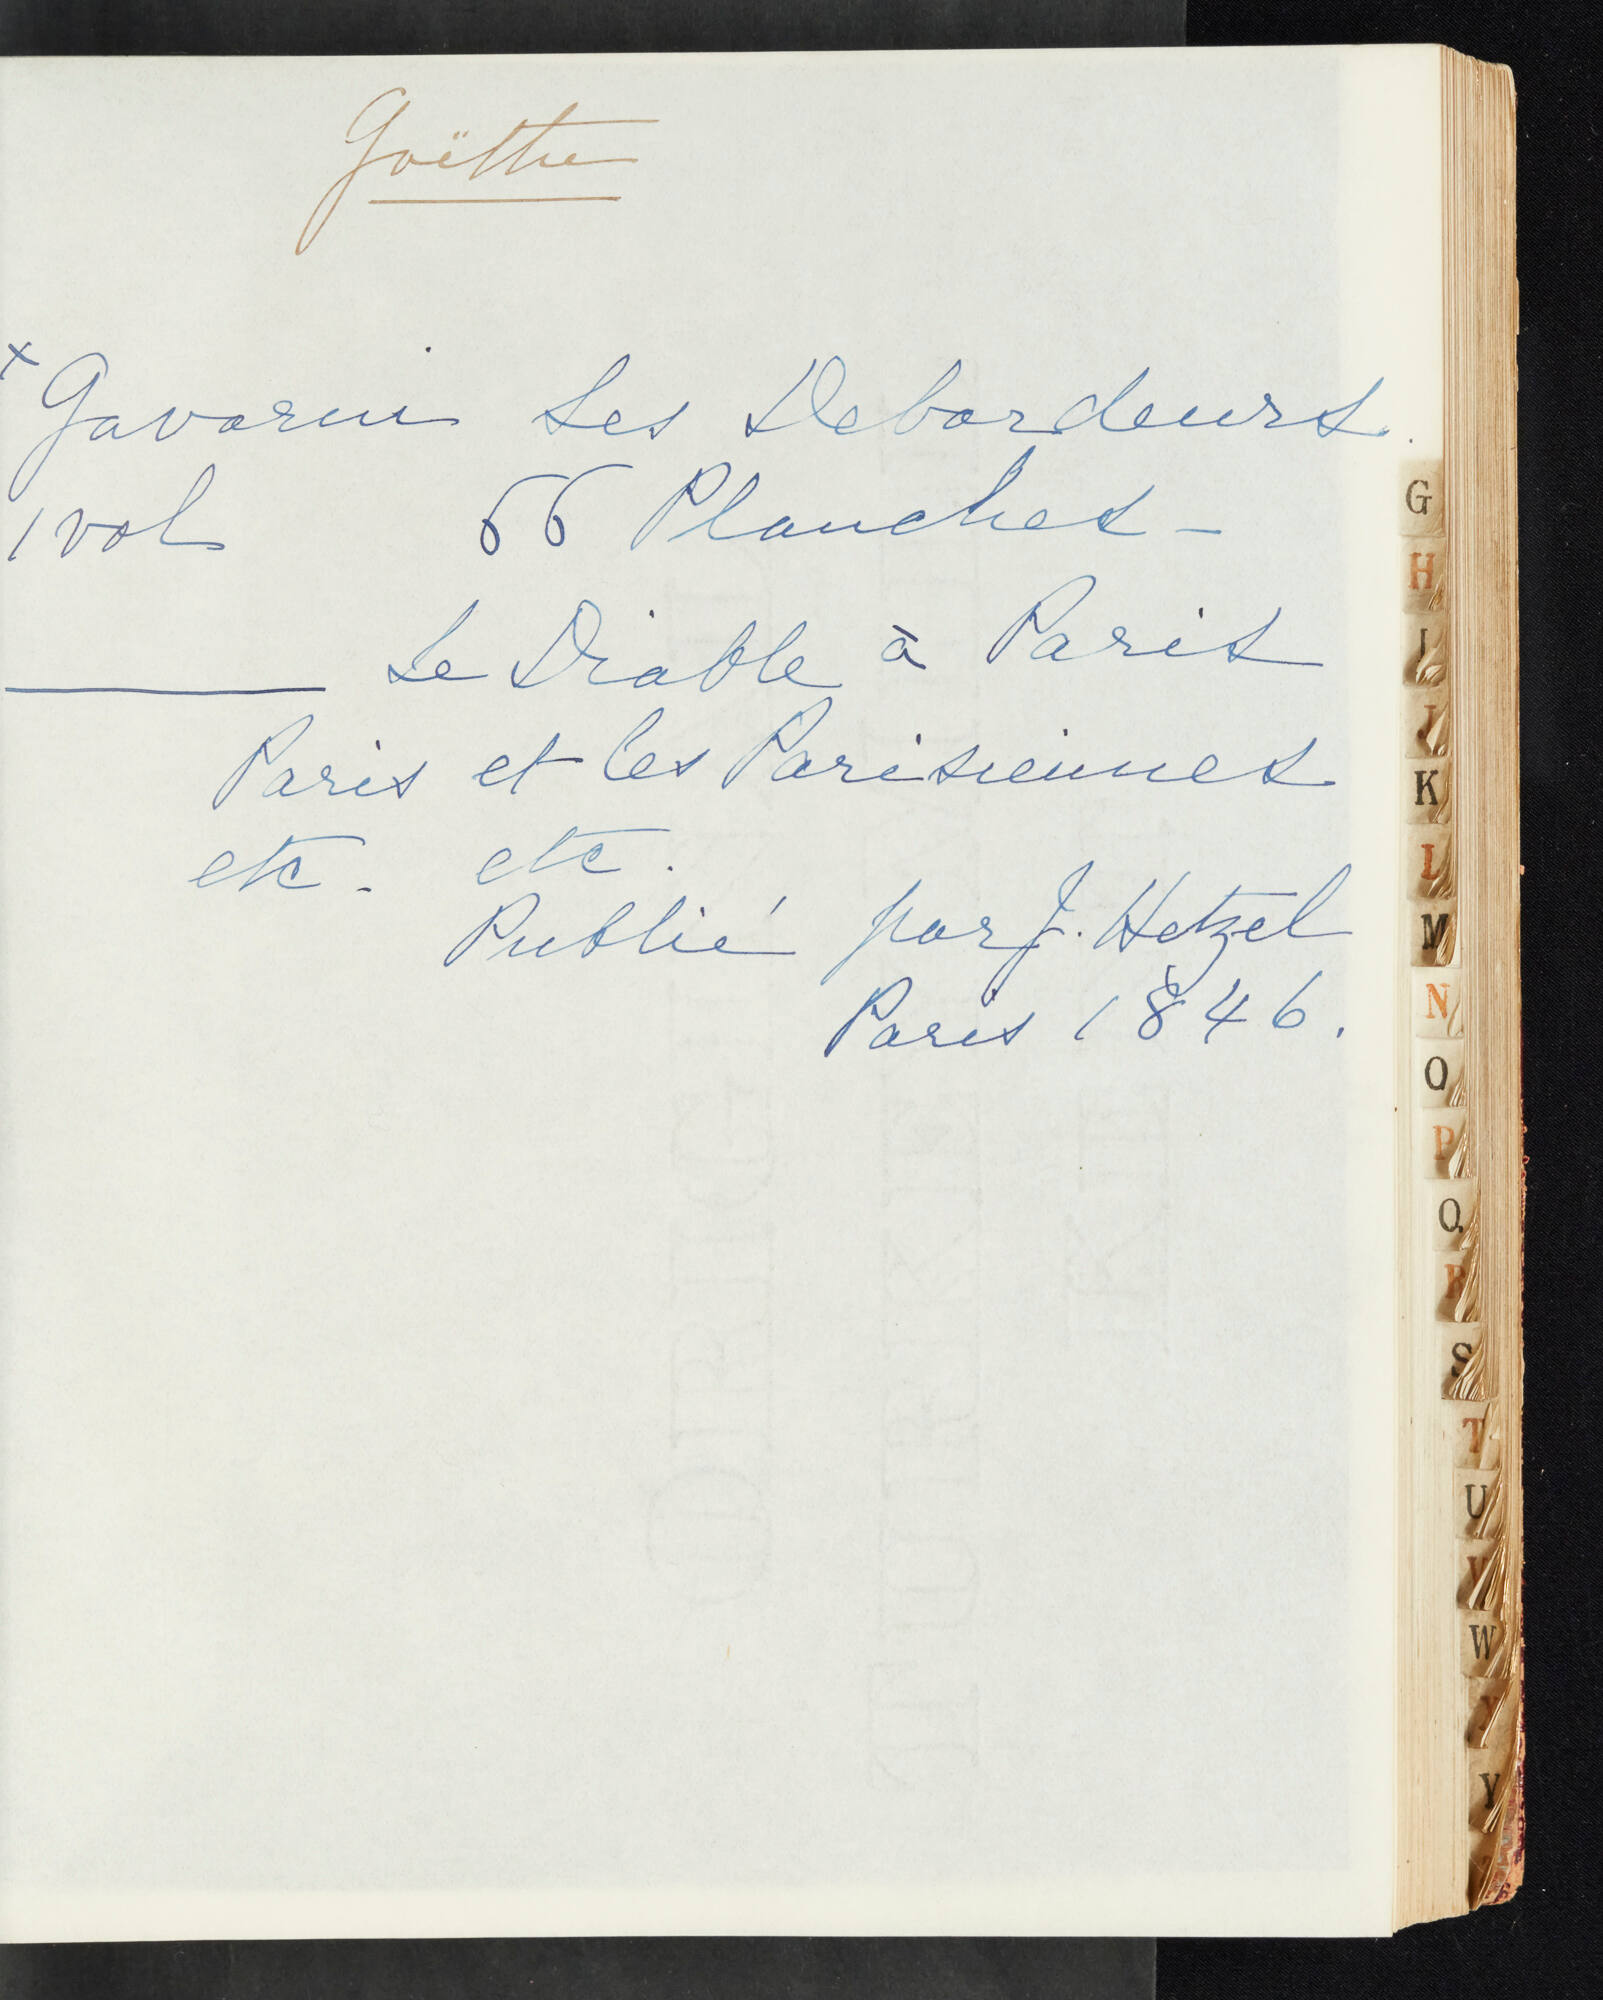 Goëthe
x Gavarni Les Debardeurs.
1 vol 66 Planches -
Le Diable à Paris
Paris et les Parisiennes
etc. etc.
Publié par J. Hetzel
Paris 1846.
G
H
I
J
K
L
M
N
O
P
Q
R
S
T
U
V
W
X
Y